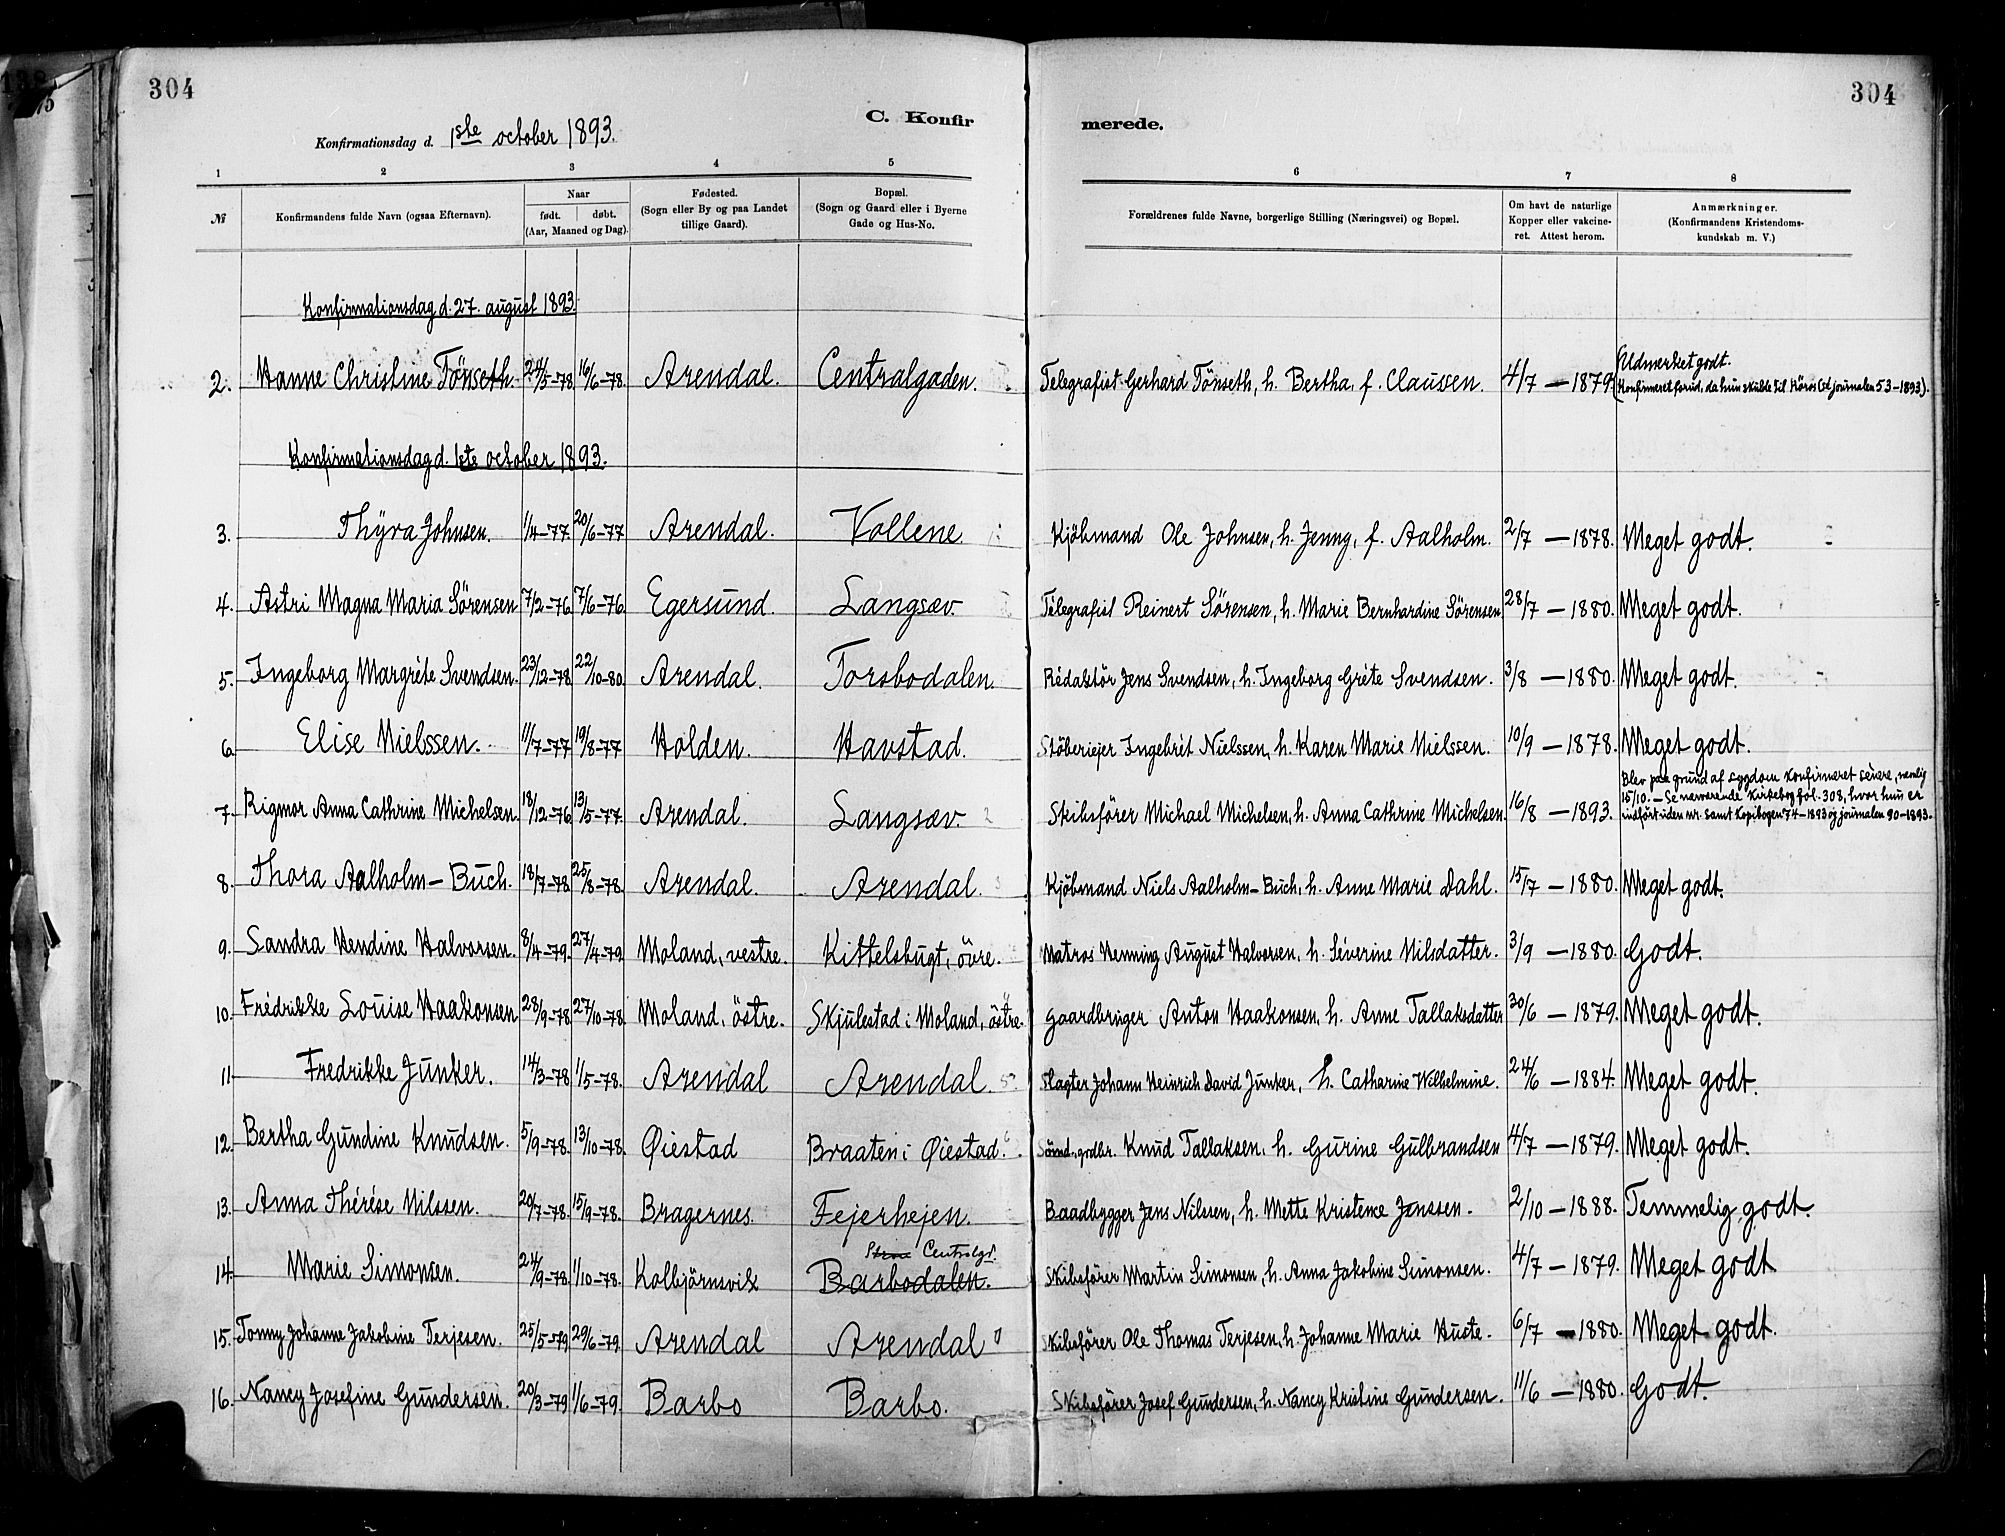 304
304
C. Konfir
merede.
Konfirmationsdag d. 1ste october 1893.
1 2 3 4 5 6 7 8
№ Konfirmandens fulde Navn (ogsaa Efternavn). Naar født. døbt. (Aar, Maaned og Dag). Fødested. (Sogn eller By og paa Landet tillige Gaard). Bopæl. (Sogn og Gaard eller i Byerne Gade og Hus-No. Forældrenes fulde Navne, borgerlige Stilling (Næringsvei) og Bopæl. Om havt de naturlige Kopper eller vakcineret. Attest herom. Anmærkninger. (Konfirmandens Kristendomskundskab m. V.)
Konfirmationsdag d. 27. august 1893.
2. Hanne Christine Tönseth. 24/5-78 16/6-78. Arendal. Centralgaden. Telegrafist Gerhard Tönseth, h. Bertha, f. Claussen. 4/7 — 1879. Udmerket godt. (Konfirmeret forud, da hun skulde til Röros (cd journalen 53-1893).
Konfirmationsdag d. 1ste october 1893.
3. Thÿra Johnsen. 1/4-77. 20/6-77 Arendal. Vollene. Kjöbmand Ole Johnsen, h. Jenny, f. Aalholm. 2/7 — 1878. Meget godt.
4. Astri Magna Maria Sörensen 7/2-76 7/6-76. Egersund. Langsæv. Telegrafist Reinert Sörensen, h. Marie Bernhardine Sörensen 28/7 — 1880. Meget godt.
5. Ingeborg Margréte Svendsen. 23/12-78. 22/10-80. Arendal. Torsbodalen. Rédaktör Jens Svendsen, h. Ingeborg Gréte Svendsen. 3/8 — 1880. Meget godt.
6. Elise Nielssen. 11/7-77 19/8-77 Holden. Havstad. Stöberiejer Ingebrit Nielssen, h. Karen Marie Nielssen. 10/9 — 1878. Meget godt.
7. Rigmor Anna Cathrine Michelsen. 18/12-76 13/5-77. Arendal. Langsæv. Skibsförer Michael Michelsen, h. Anna Cathrine Michelsen. 16/8 — 1893. Blev paa grund af sygdom konfirmeret senere, nemlig
15/10. — Se nærværende Kirkebog fol. 308, hvor hun er
indfört uden nr. samt Kopibogen 74-1893 og journalen 90-1893.
8. Thora Aalholm-Buch. 18/7-78. 25/8-78. Arendal. Arendal. Kjöbmand Niels Aalholm-Buch, h. Anne Marie Dahl. 15/7 — 1880. Meget godt.
9. Sandra Hendine Halvorsen. 8/4-79. 27/4-79. Moland, vestre. Kittelsbugt, övre. Matros Henning August Halvorsen, h. Séverine Nilsdatter. 3/9 — 1880. Godt.
10. Frédrikke Louise Haakonsen 28/9-78 27/10-78. Moland, östre. Skjulestad i Moland, östre. Gaardbruger Anton Haakonsen, h. Anne Tallaksdatter 30/6 — 1879. Meget godt.
11. Fredrikke Junker. 14/3-78 1/5-78. Arendal Arendal. Slagter Johann Heinrich David Junker, h. Catharine Wilhelmine. 24/6 — 1884. Meget godt.
12. Bertha Gundine Knudsen. 5/9-78. 13/10-78. Øiestad Braaten i Øiestad. gdbr. Knud Tallaksen, h. Gurine Gulbrandsen 4/7 — 1879. Meget godt.
13. Anna Thérése Nilssen. 20/7-78. 15/9-78. Bragernes. Fejerhejen. Baadbygger Jens Nilssen, h. Mette Kristence Jenssen. 2/10 — 1888. Temmelig godt.
Centralgd.
14. Marie Simonsen. 24/9-78. 1/10-78. Kolbjörnsvik Barbodalen. Skibsförer Martin Simonsen, h. Anna Jakobine Simonsen. 4/7 — 1879. Meget godt
15. Tonny Johanne Jakobine Terjesen. 25/5-79. 29/6-79. Arendal Arendal Skibsförer Ole Thomas Terjesen, h. Johanne Marie Huste. 6/7 — 1880. Meget godt.
16. Nancy Josefine Gundersen. 20/3-79 1/6-79. Barbo Barbo. Skibsförer Josef Gundersen, h. Nancy Kristine Gundersen. 11/6 — 1880. Godt.